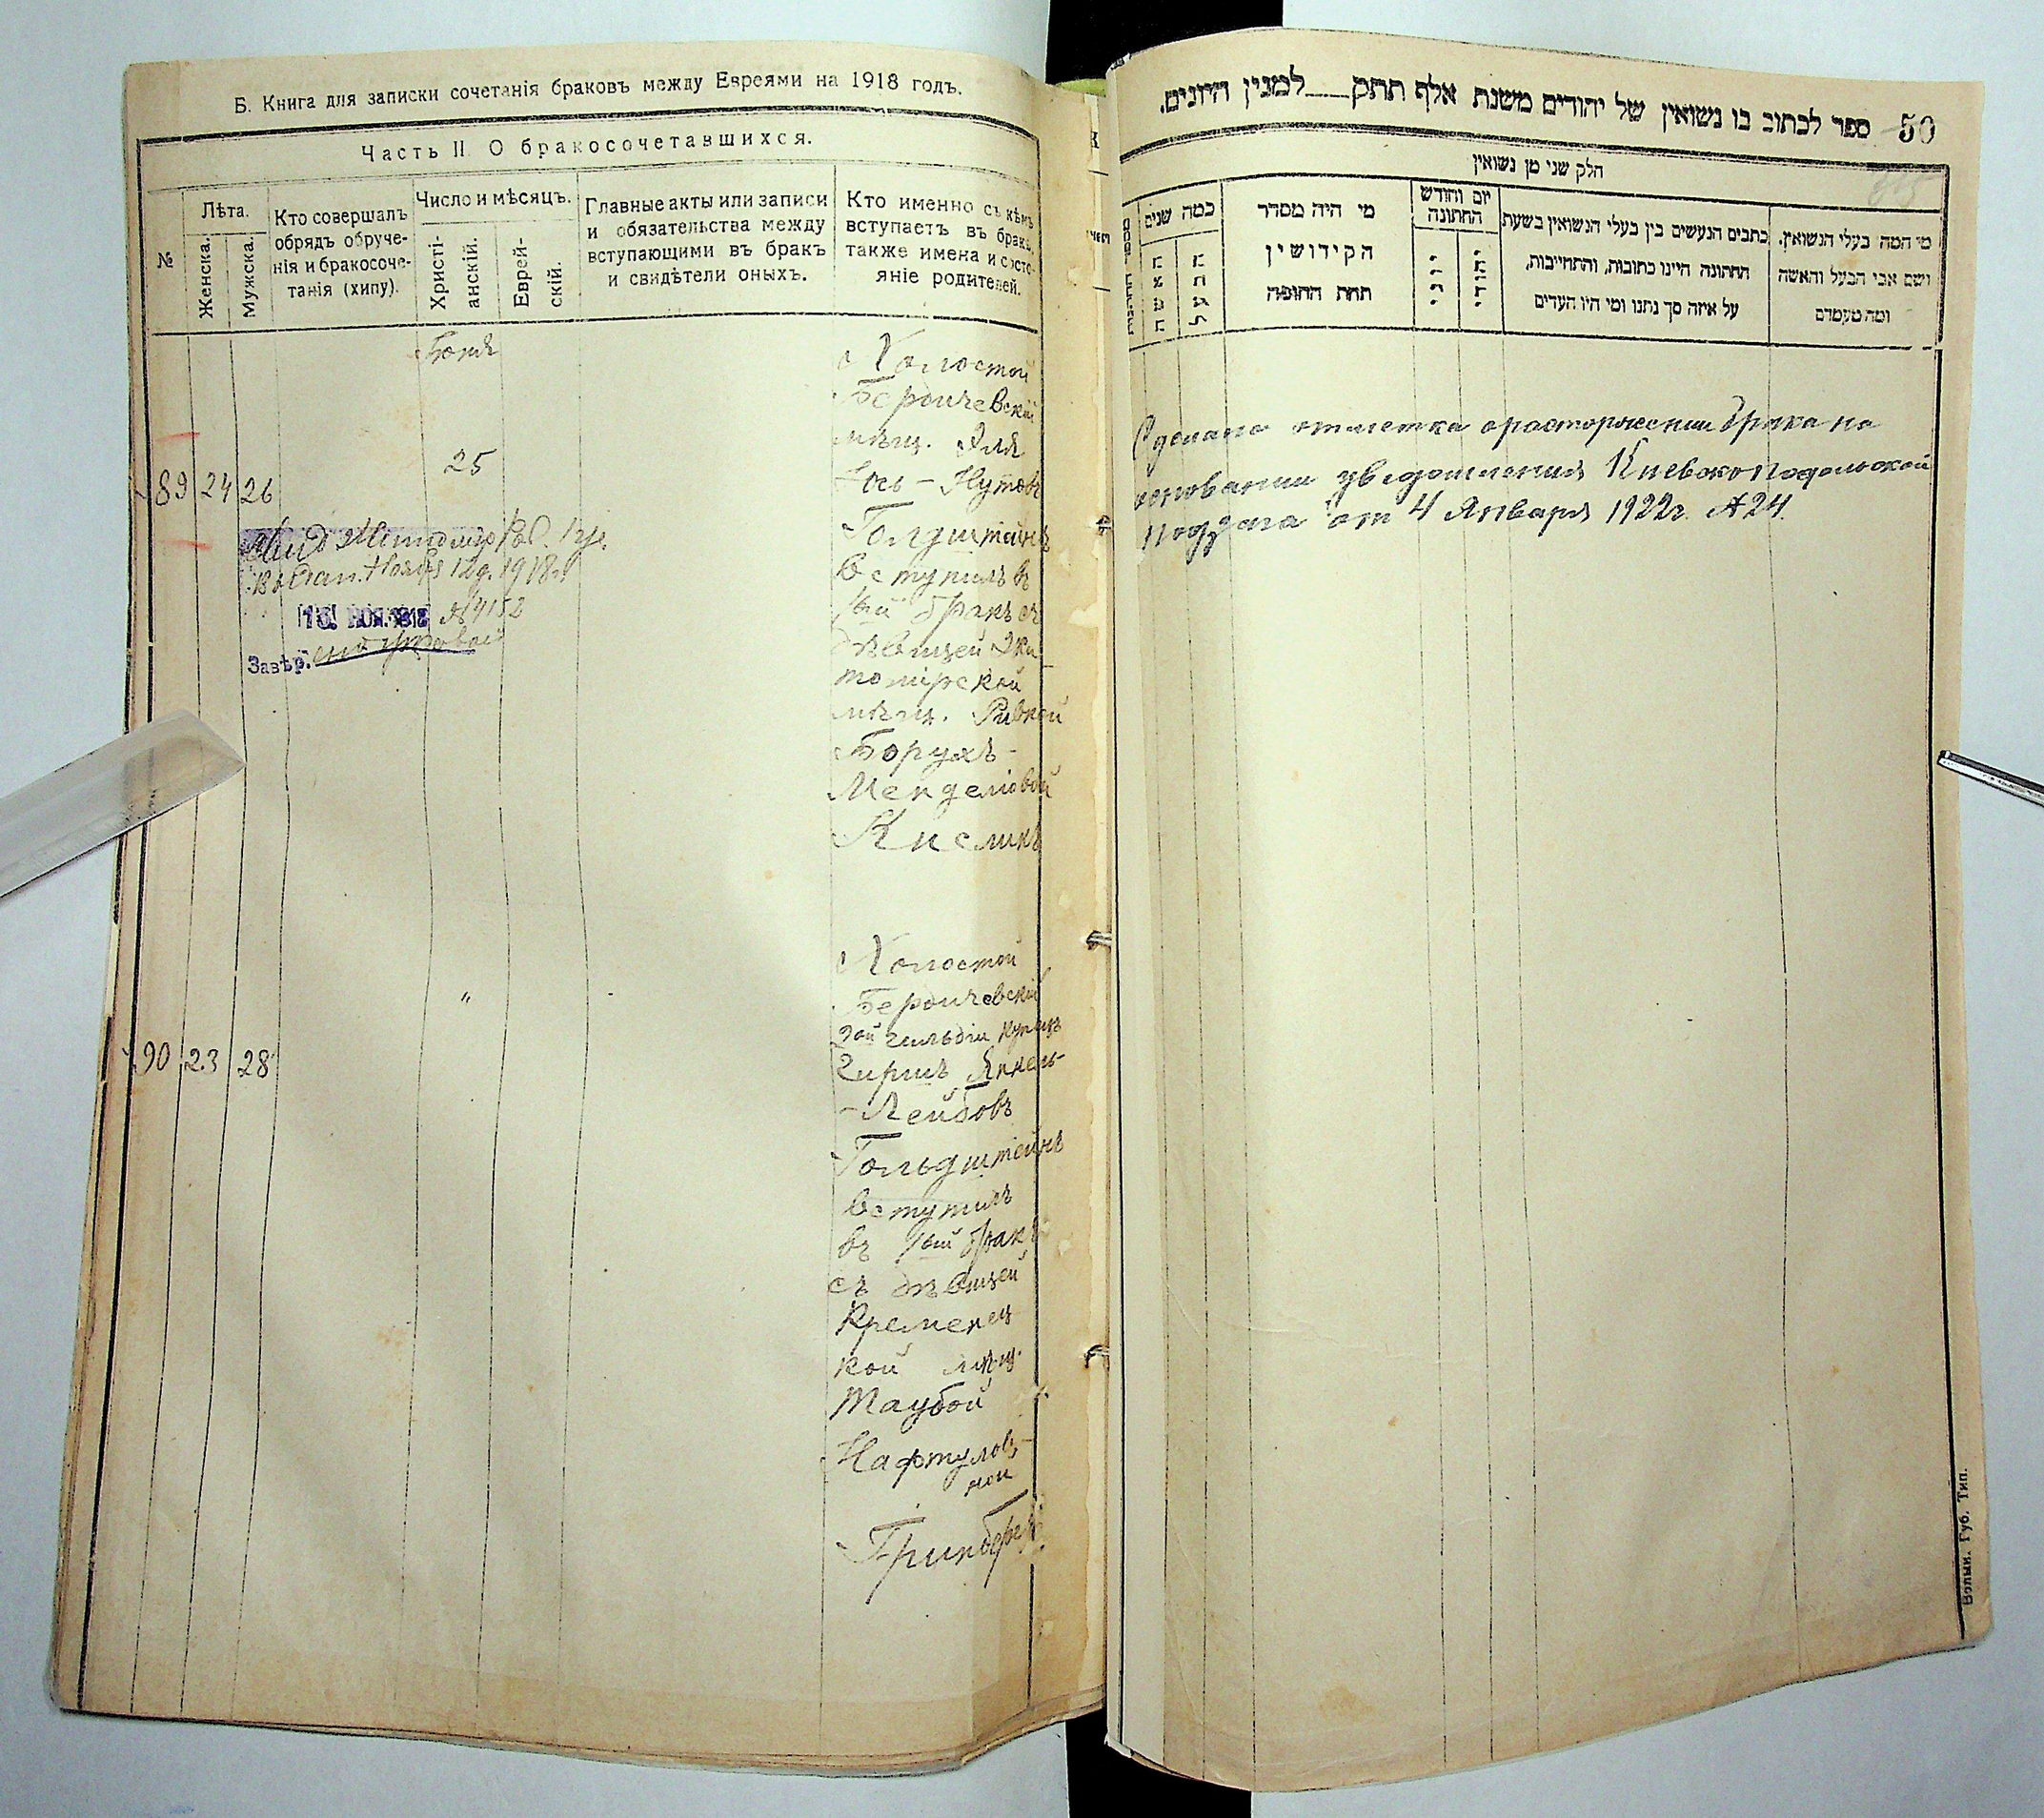 Б. Книга для записки сочетанія браковъ между Евреями на 1918 годъ.
Часть II О бракосочетавшихся.
№
Лѣта.
Женска.
Мужска.
Кто совершалъ
обрядъ обруче-
нія и бракосоче-
танія (хипу).
Число и мѣсяцъ.
Христі-
анскій.
Еврей-
скій.
Главные акты или записи
и обязательства между
вступающими въ бракъ
и свидѣтели оныхъ.
Кто именно съ кѣмъ
вступаетъ въ бракъ,
также имена и состо-
яніе родителей.
89 24 26
25
Холостой
Бердичевскій
мѣщ. Эля
Іось-Нутовъ
Голдштейнъ
вступилъ въ
1ый бракъ съ
дѣвицей Жи-
томірской
мѣщ. Ривкой
Борухъ-
Менделіовой
Кисликъ
12 1918
№4152
Завѣр.
90 23 28
"
Холостой
Бердичевскій
2ой гильдіи купецъ
Гиршъ Янкель-
-Лейбовъ
Гольдштейнъ
вступилъ
въ 1ый бракъ
съ дѣвицей
Кременец
кой мѣщ.
Таубой
Нафтулов-
ной
Гринберг
50
ספר לכתוב בו נשואין של יהודים משנת אלף תתק למנין היונים.
חלק שני מן נשואין
כמה שנים
האשה
הבעל
מי היה מסדר
הקידושין
תחת החופה
יום וחודש
החתונה
יוני
יהודי
כתבים הנעשים בין בעלי הנשואין בשעת
החתונה היינו כתובות, והתחייבות,
על איזה סך נתנו ומי היו העדים
מי המה בעלי הנשואין.
ושם אבי הבעל והאשה
ומה מעמדם
Сделана отметка о расторжении брака на
основании уведомления Киевско Подольской
Подзага от 4 Января 1922г. №24.
Волын. Губ. Тип.